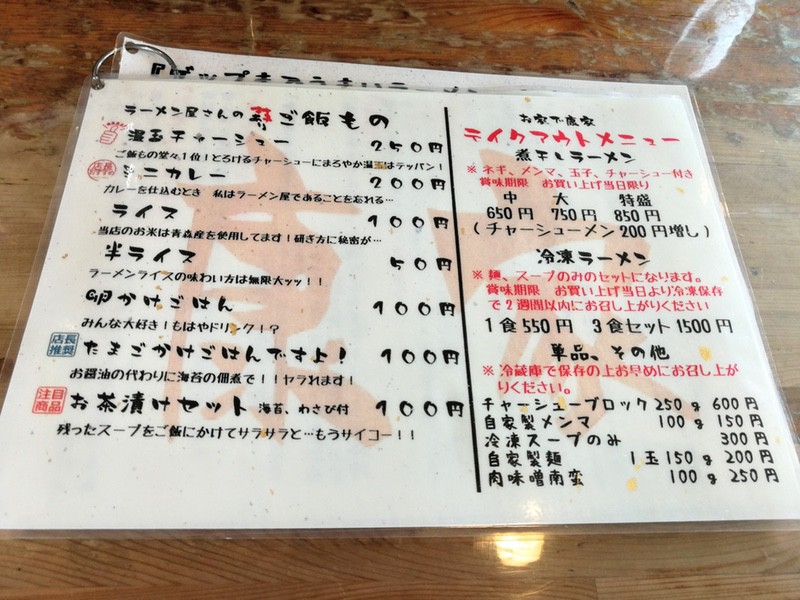 『ギップ
ラーメン屋さんのご飯もの
温玉チャーシュー 250円
ご飯もの堂々1位!とろけるチャーシューにまろやか温玉はテッパン!
ミニカレー 200円
カレーを仕込むとき 私はラーメン屋であることを忘れる…
ライス 100円
当店のお米は青森産を使用してます!研ぎ方に秘密が…
半ライス 50円
ラーメンライスの味わい方は無限大ッッ!!
卵かけごはん 100円
みんな大好き!もはやドリンク!?
店長推奨 たまごかけごはんですよ! 100円
お醤油の代わりに海苔の佃煮で!!ヤラれます!
注目商品 お茶漬けセット 海苔、わさび付 100円
残ったスープをご飯にかけてサラサラと…もうサイコー!!
お家で
テイクアウトメニュー
煮干しラーメン
※ネギ、メンマ、玉子、チャーシュー付き
賞味期限 お買い上げ当日限り
中 大 特盛
650円 750円 850円
(チャーシューメン200円増し)
冷凍ラーメン
※麺、スープのみのセットになります。
賞味期限 お買い上げ当日より冷凍保存
で2週間以内にお召し上がりください
1食550円 3食セット1500円
単品、その他
※冷蔵庫で保存の上お早めにお召し上が
りください。
チャーシューブロック250g 600円
自家製メンマ 100g 150円
冷凍スープのみ 300円
自家製麺 1玉150g 200円
肉味噌南蛮 100g 250円